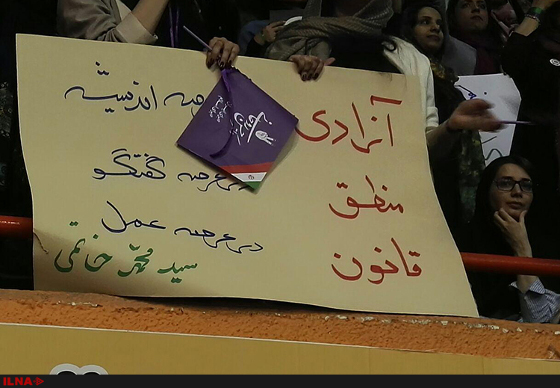 آزادی عرصه اندیشه
منطق در عرصه گفتگو
قانون در عرصه عمل
سید محمد خاتمی
ILNA